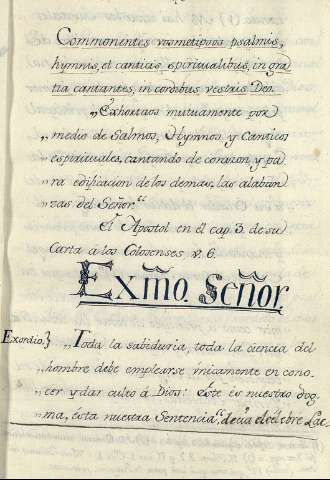 Commonentes vosmetipsos psalmis,
hymnis, et canticis spiritualibus, in gra
tia cantantes, in cordibus vestris Deo.
„Exhortaos mutuamente por
„medio de Salmos, Hymnos y Canticos
„espirituales, cantando de corazon y pa
„ra edificacion de los demas, las alaban
„zas del Señor.“
El Apostol en él cap. 3. de su
Carta a los Colosenses v. 6.
Exmo. Señor.
Exordio.} „Toda la sabiduria, toda la ciencia del
„hombre debe emplearse unicamente en cono
„cer y dar culto á Dios: Este es nuestro dog
„ma, ésta nuestra Sentencia“, decia el célebre Lac-